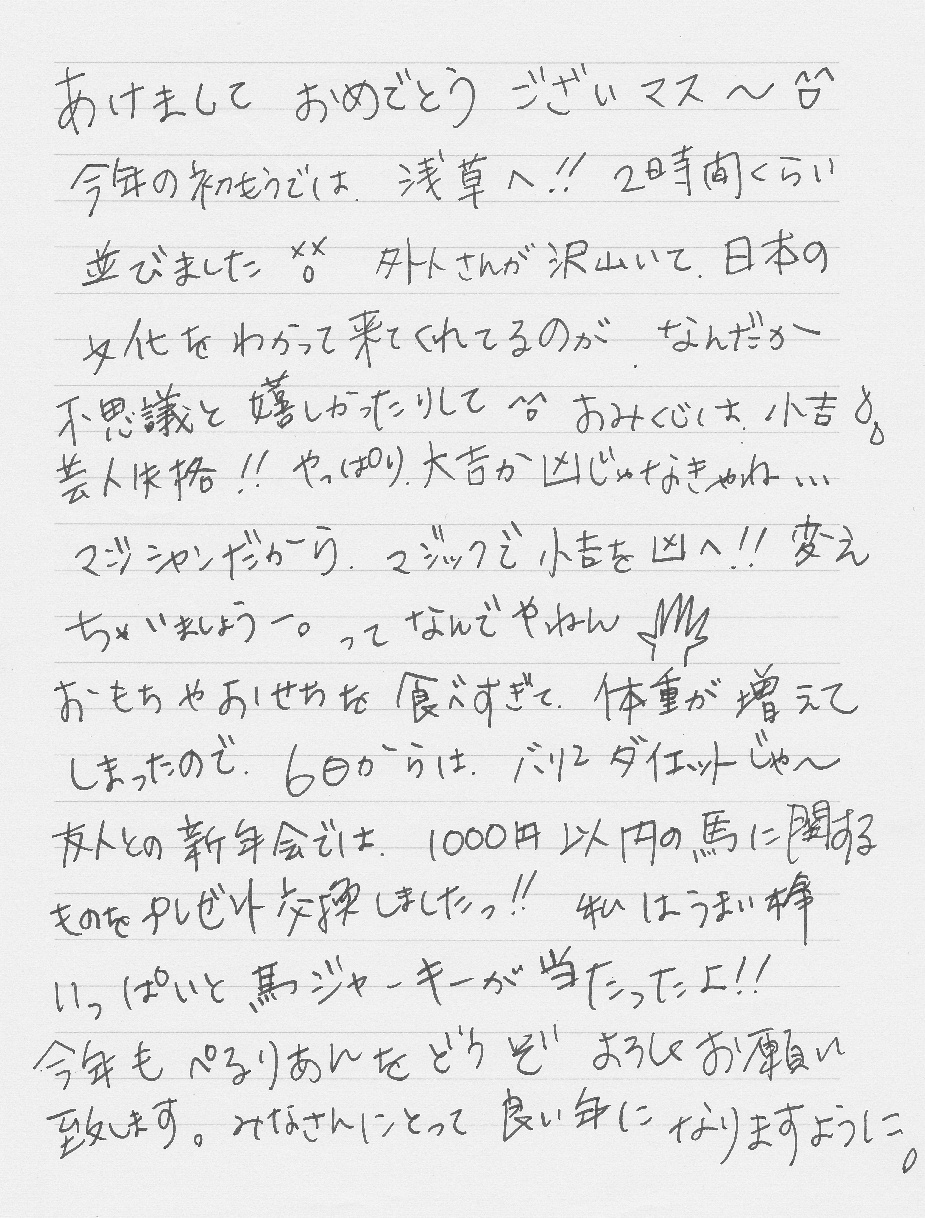 あけまして おめでとう ございマス〜^^
今年の初もうでは、浅草へ!! 2時間くらい
並びました×× 外人さんが沢山いて、日本の
文化をわかって来てくれてるのが なんだか
不思議と嬉しかったりして^^ おみくじは、小吉
芸人失格!! やっぱり、大吉か凶じゃなきゃね…
マジシャンだから、マジックで小吉を凶へ!! 変え
ちゃいましょうー。ってなんでやねん
おもちゃおせちを食べすぎて、体重が増えて
しまったので、6日からは、バリ2ダイエットじゃ〜
友人との新年会では、1000円以内の馬に関する
ものをプレゼント交換しましたっ!! 私はうまい棒
いっぱいと馬ジャーキーが当たったよ!!
今年もぺるりあんをどうぞ よろしくお願い
致します。みなさんにとって良い年になりますように。